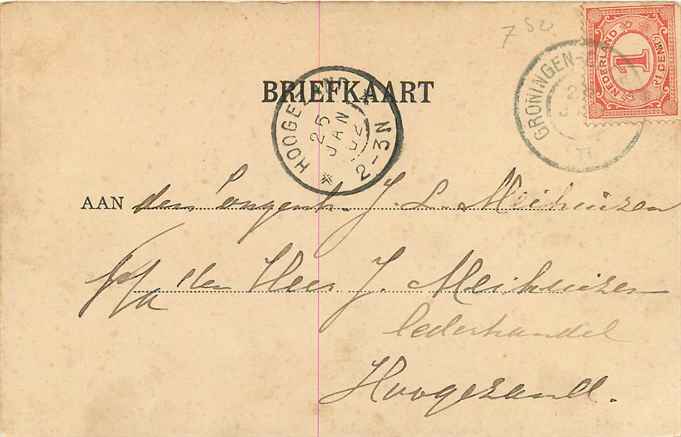 750
NEDERLAND 1 CENT
GRONINGEN-
BRIEFKAART
HOOGEZAND
25 JAN 02
2-3N
AAN den Jongenh. J. L. Meihuizen
p/a den Heer J. Meihuizen
lederhandel
Hoogezand.